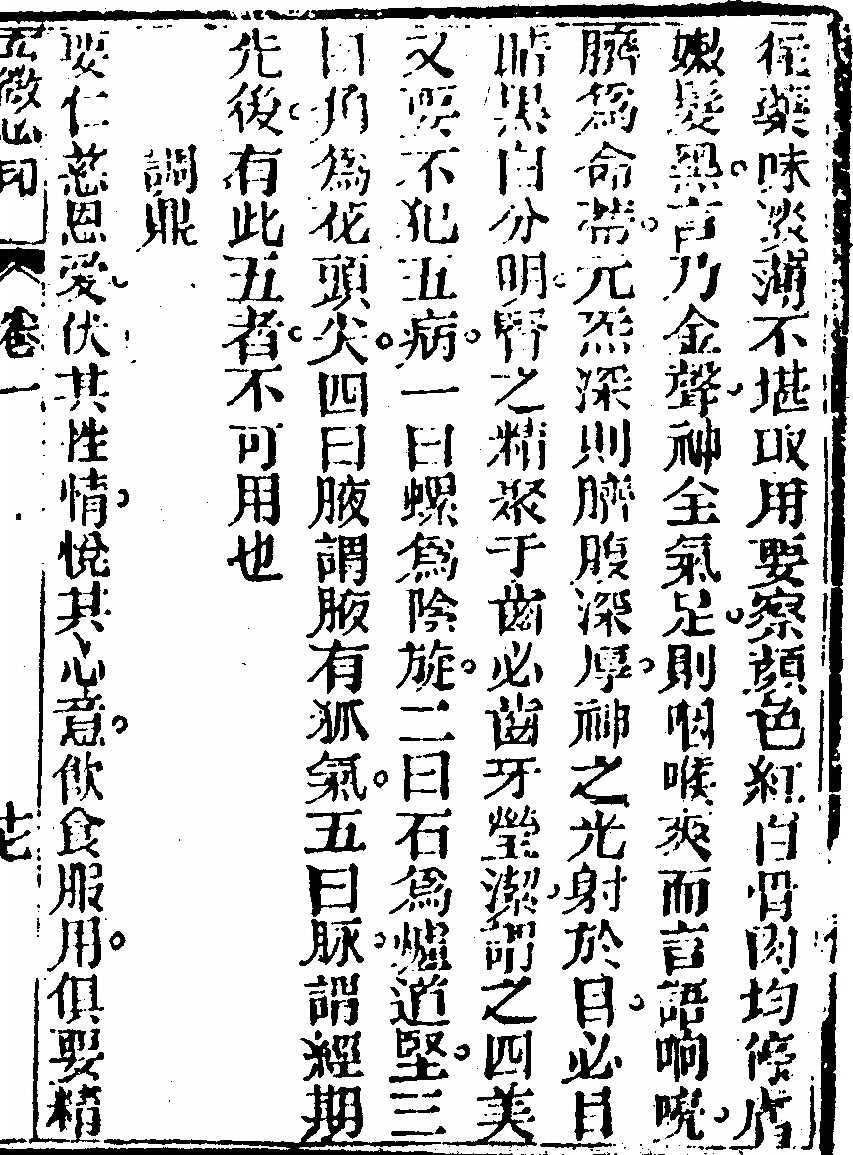 從藥味淡薄不堪取用要察顔色紅白骨肉均停膚
嫩髮黑言乃金聲神全氣足則咽喉爽而言語响喨
臍爲命蒂元炁深則臍腹深厚神之光射於目必目
睛黒白分明腎之精聚于齒必齒牙瑩潔謂之四美
又要不犯五病一曰螺爲陰旋二曰石爲爐道堅三
曰角爲花頭尖四曰腋謂腋有狐氣五曰脉謂經期
先後有此五者不可用也
調鼎
要仁慈恩愛伏其性情悅其心意飲食服用俱要精
玄微心印
卷一
十七